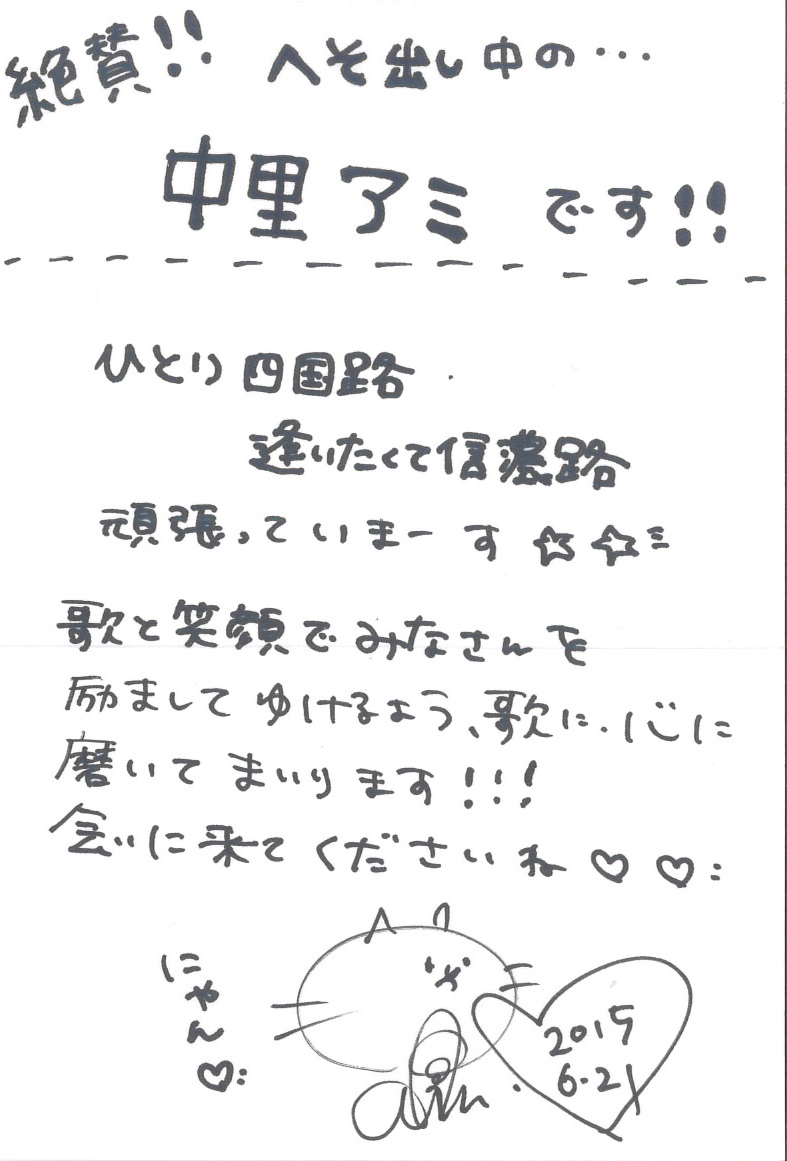 絶賛!! へそ出し中の…
中里アミ です!!
ひとり四国路
逢いたくて信濃路
頑張っていまーす☆☆ミ
歌と笑顔でみなさんを
励ましてゆけるよう、歌に・心に
磨いてまいります!!!
会いに来てくださいね♡♡:
にゃん♡:
2015
6.21